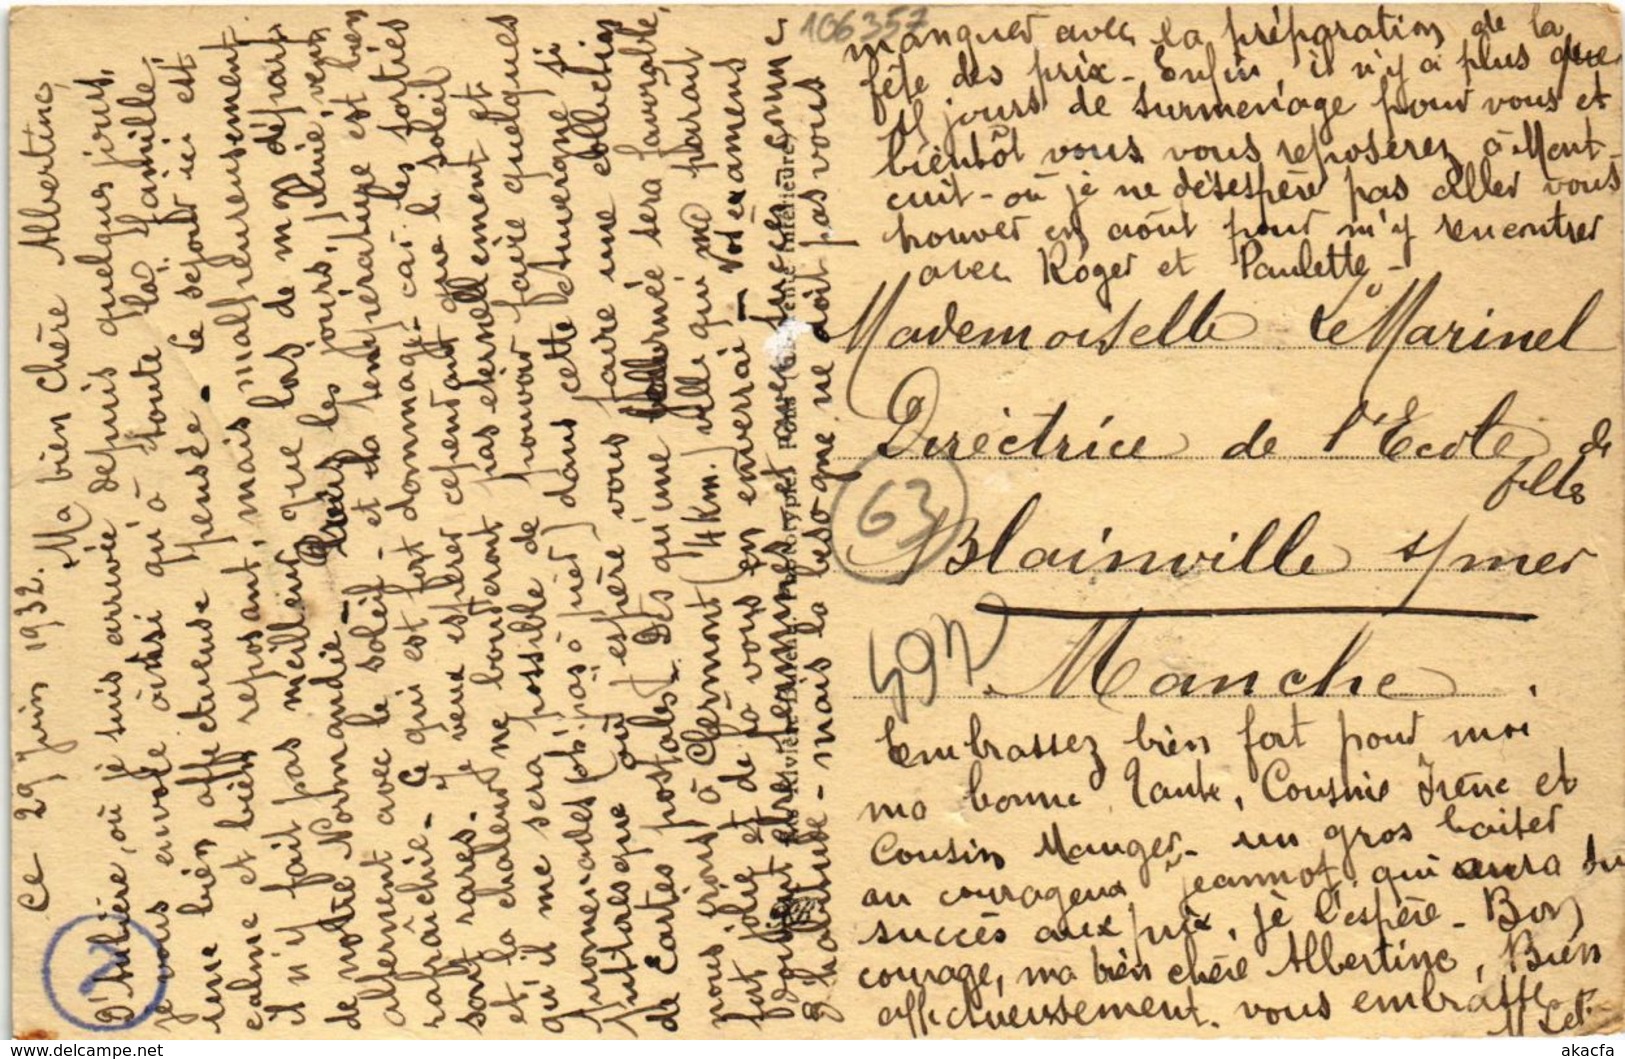 Ce 29 Juin 1932. Ma bien chère Albertine,
D'Aubière, où je suis arrivée depuis quelques jours,
je vous envoie ainsi qu'à toute la famille,
une bien affectueuse pensée. Le séjour ici est
calme et bien reposant, mais malheureusement
il n'y fait pas meilleur que lors de mon départ
de notre Normandie - les jours, pluie, vent
alternent avec le soleil - et la température est bien
rafraîchie - Ce qui est fort dommage - car les sorties
sont rares. Je veux espérer cependant que le soleil
et la chaleur ne bouderont pas éternellement et
qu'il me sera possible de pouvoir faire quelques
promenades (pas à pied) dans cette Auvergne si
pittoresque où j'espère vous faire une collection
de Cartes postales. Dès qu'une journée sera favorable,
nous irons à Clermont (4 Km.) ville qui me paraît
fort jolie et de là vous en enverrai - Vos examens
doivent être terminés et avec succès comme
d'habitude - mais la besogne ne doit pas vous
106357
manquer avec la préparation de la
fête des prix - Enfin, il n'y a plus que
jours de surmenage pour vous et
bientôt vous vous reposerez à Mont-
cuit - où je ne désespère pas aller vous
trouver en août pour m'y rencontrer
avec Roger et Paulette -
Mademoiselle Le Marinel
Directrice de l'Ecole de
filles
63
Blainville s/mer
497
Manche.
Embrassez bien fort pour moi
ma bonne Tante, Cousine Irène et
Cousin Mauger - un gros baiser
au courageux Jeannot, qui aura du
succès aux prix, je l'espère - Bon
courage, ma bien chère Albertine, Bien
affectueusement vous embrasse
2
akacfa